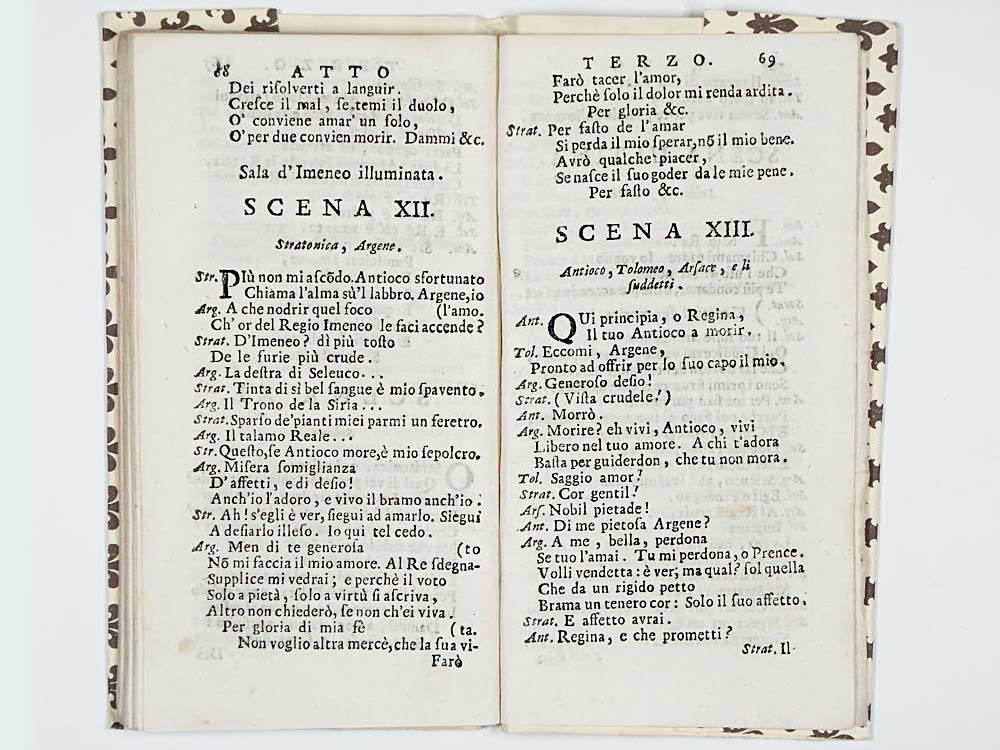 88 ATTO
Dei risolverti a languir.
Cresce il mal, se temi il duolo,
O' conviene amar' un solo,
O' per due convien morir. Dammi &c.
Sala d'Imeneo illuminata.
SCENA XII.
Stratonica, Argene.
Str. PIù non mi ascõdo. Antioco sfortunato
Chiama l'alma sù'l labbro. Argene, io
Arg. A che nodrir quel foco (l'amo.
Ch' or del Regio Imeneo le faci accende?
Strat. D'Imeneo? dì più tosto
De le furie più crude.
Arg. La destra di Seleuco...
Strat. Tinta di sì bel sangue è mio spavento.
Arg. Il Trono de la Siria...
Strat. Sparso de'pianti miei parmi un feretro.
Arg. Il talamo Reale...
Str. Questo, se Antioco more, è mio sepolcro.
Arg. Misera somiglianza
D'affetti, e di desio!
Anch'io l'adoro, e vivo il bramo anch'io.
Str. Ah! s'egli è ver, siegui ad amarlo. Siegui
A desiarlo illeso. Io qui tel cedo.
Arg. Men di te generosa (to
Nõ mi faccia il mio amore. Al Re sdegna-
Supplice mi vedrai; e perchè il voto
Solo a pietà, solo a virtù si ascriva,
Altro non chiederò, se non ch'ei viva.
Per gloria di mia fè (ta.
Non voglio altra mercè, che la sua vi-
Farò
TERZO. 69
Farò tacer l'amor,
Perchè solo il dolor mi renda ardita.
Per gloria &c.
Strat. Per fasto de l'amar
Si perda il mio sperar, nõ il mio bene.
Avrò qualche piacer,
Se nasce il suo goder da le mie pene.
Per fasto &c.
SCENA XIII.
Antioco, Tolomeo, Arsace, e li
suddetti.
Ant. QUi principia, o Regina,
Il tuo Antioco a morir.
Tol. Eccomi, Argene,
Pronto ad offrir per lo suo capo il mio.
Arg. Generoso desio!
Strat. (Vista crudele!)
Ant. Morrò.
Arg. Morire? eh vivi, Antioco, vivi
Libero nel tuo amore. A chi t'adora
Basta per guiderdon, che tu non mora.
Tol. Saggio amor!
Strat. Cor gentil!
Ars. Nobil pietade!
Ant. Di me pietosa Argene?
Arg. A me, bella, perdona
Se tuo l'amai. Tu mi perdona, o Prence.
Volli vendetta: è ver; ma qual? sol quella
Che da un rigido petto
Brama un tenero cor: Solo il suo affetto.
Strat. E affetto avrai.
Ant. Regina, e che prometti?
Strat. Il